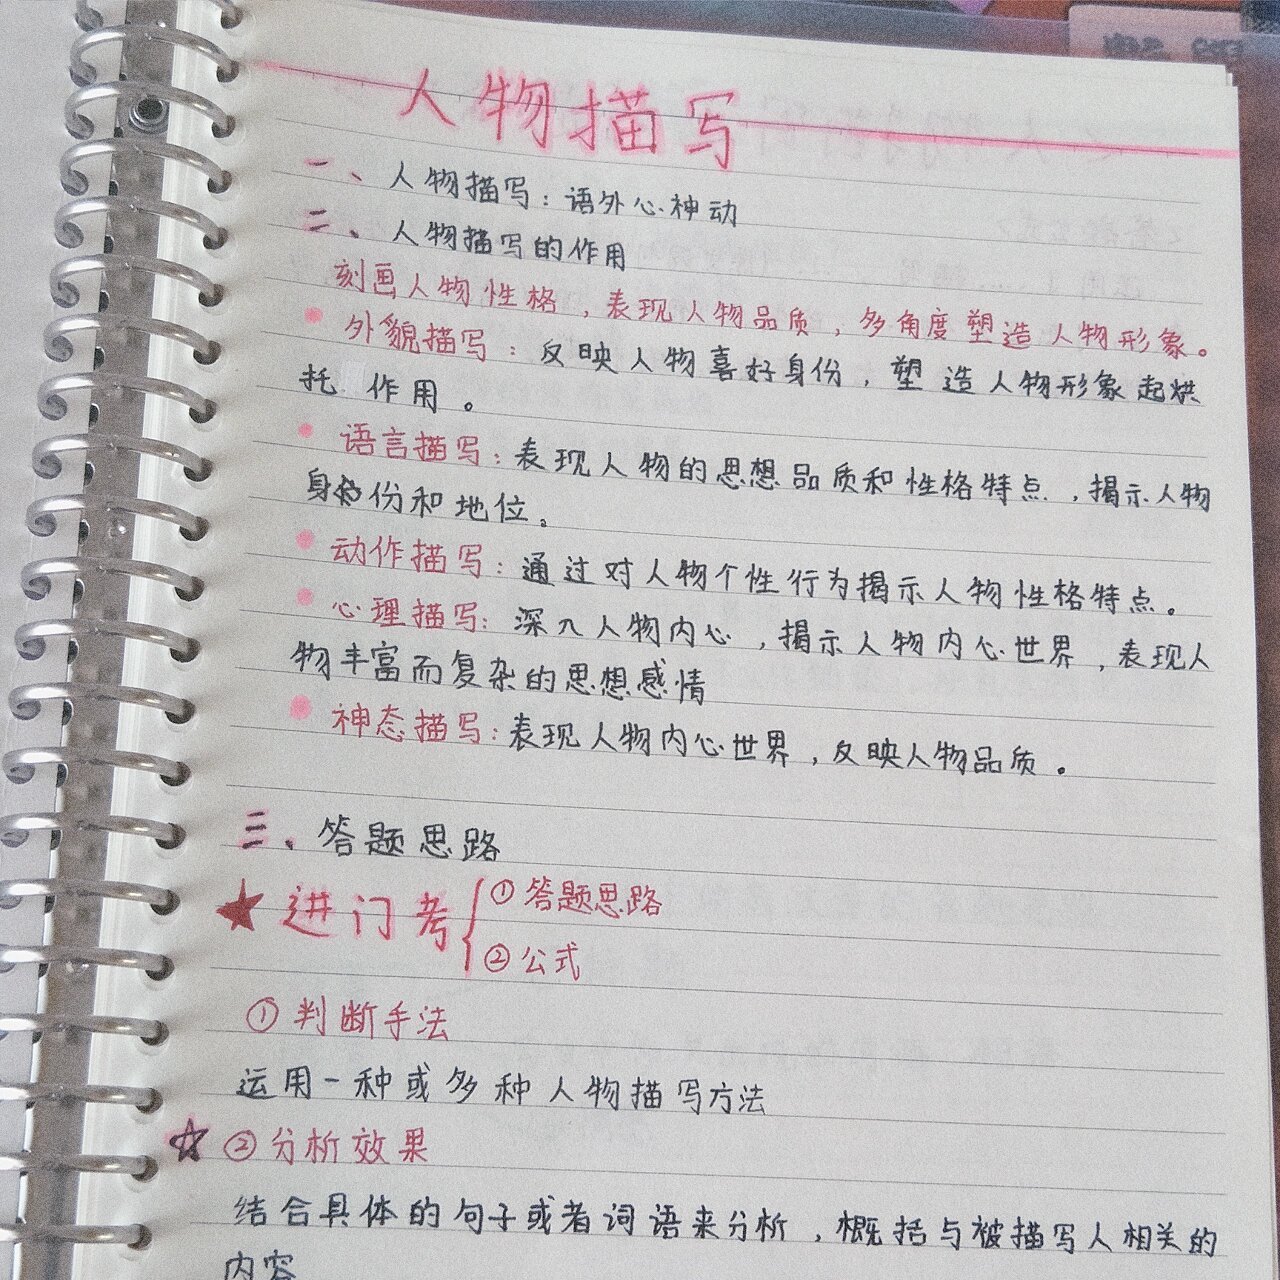 人物描写
一、人物描写：语外心神动
二、人物描写的作用
刻画人物性格，表现人物品质，多角度塑造人物形象。
外貌描写：反映人物喜好身份，塑造人物形象起烘
托作用。
语言描写：表现人物的思想品质和性格特点，揭示人物
身份和地位。
动作描写：通过对人物个性行为揭示人物性格特点。
心理描写：深入人物内心，揭示人物内心世界，表现人
物丰富而复杂的思想感情
神态描写：表现人物内心世界，反映人物品质。
三、答题思路
★进门考{①答题思路
②公式
①判断手法
运用一种或多种人物描写方法
☆②分析效果
结合具体的句子或者词语来分析，概括与被描写人相关的
内容